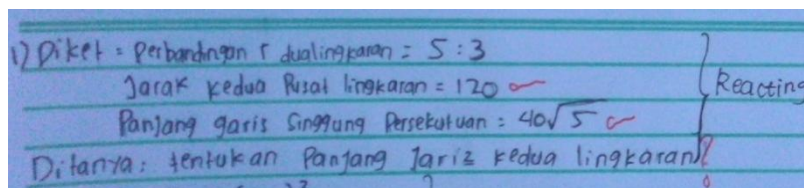 1) Diket = Perbandingan r dualingkaran = 5 : 3
Jarak kedua Pusat lingkaran = 120
Reacting
Panjang garis Singgung Persekutuan = 40√5
Ditanya: tentukan Panjang Jariz kedua lingkaran?